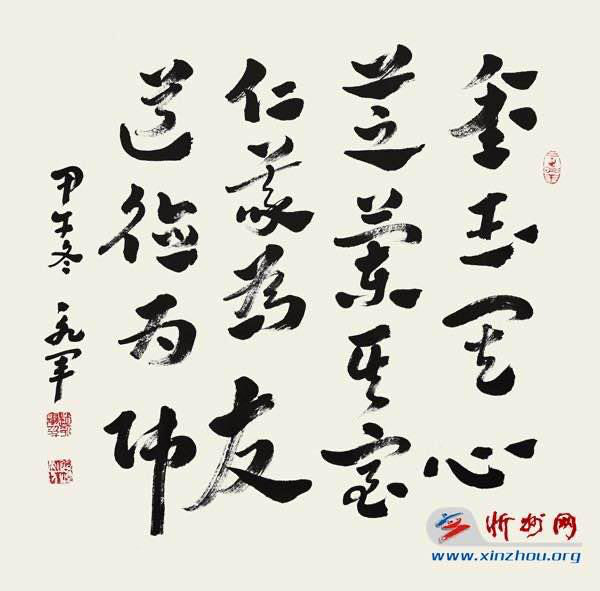 金玉其心
芝蘭其室
仁義为友
道德为师
甲午冬 永军
忻州网
www.xinzhou.org